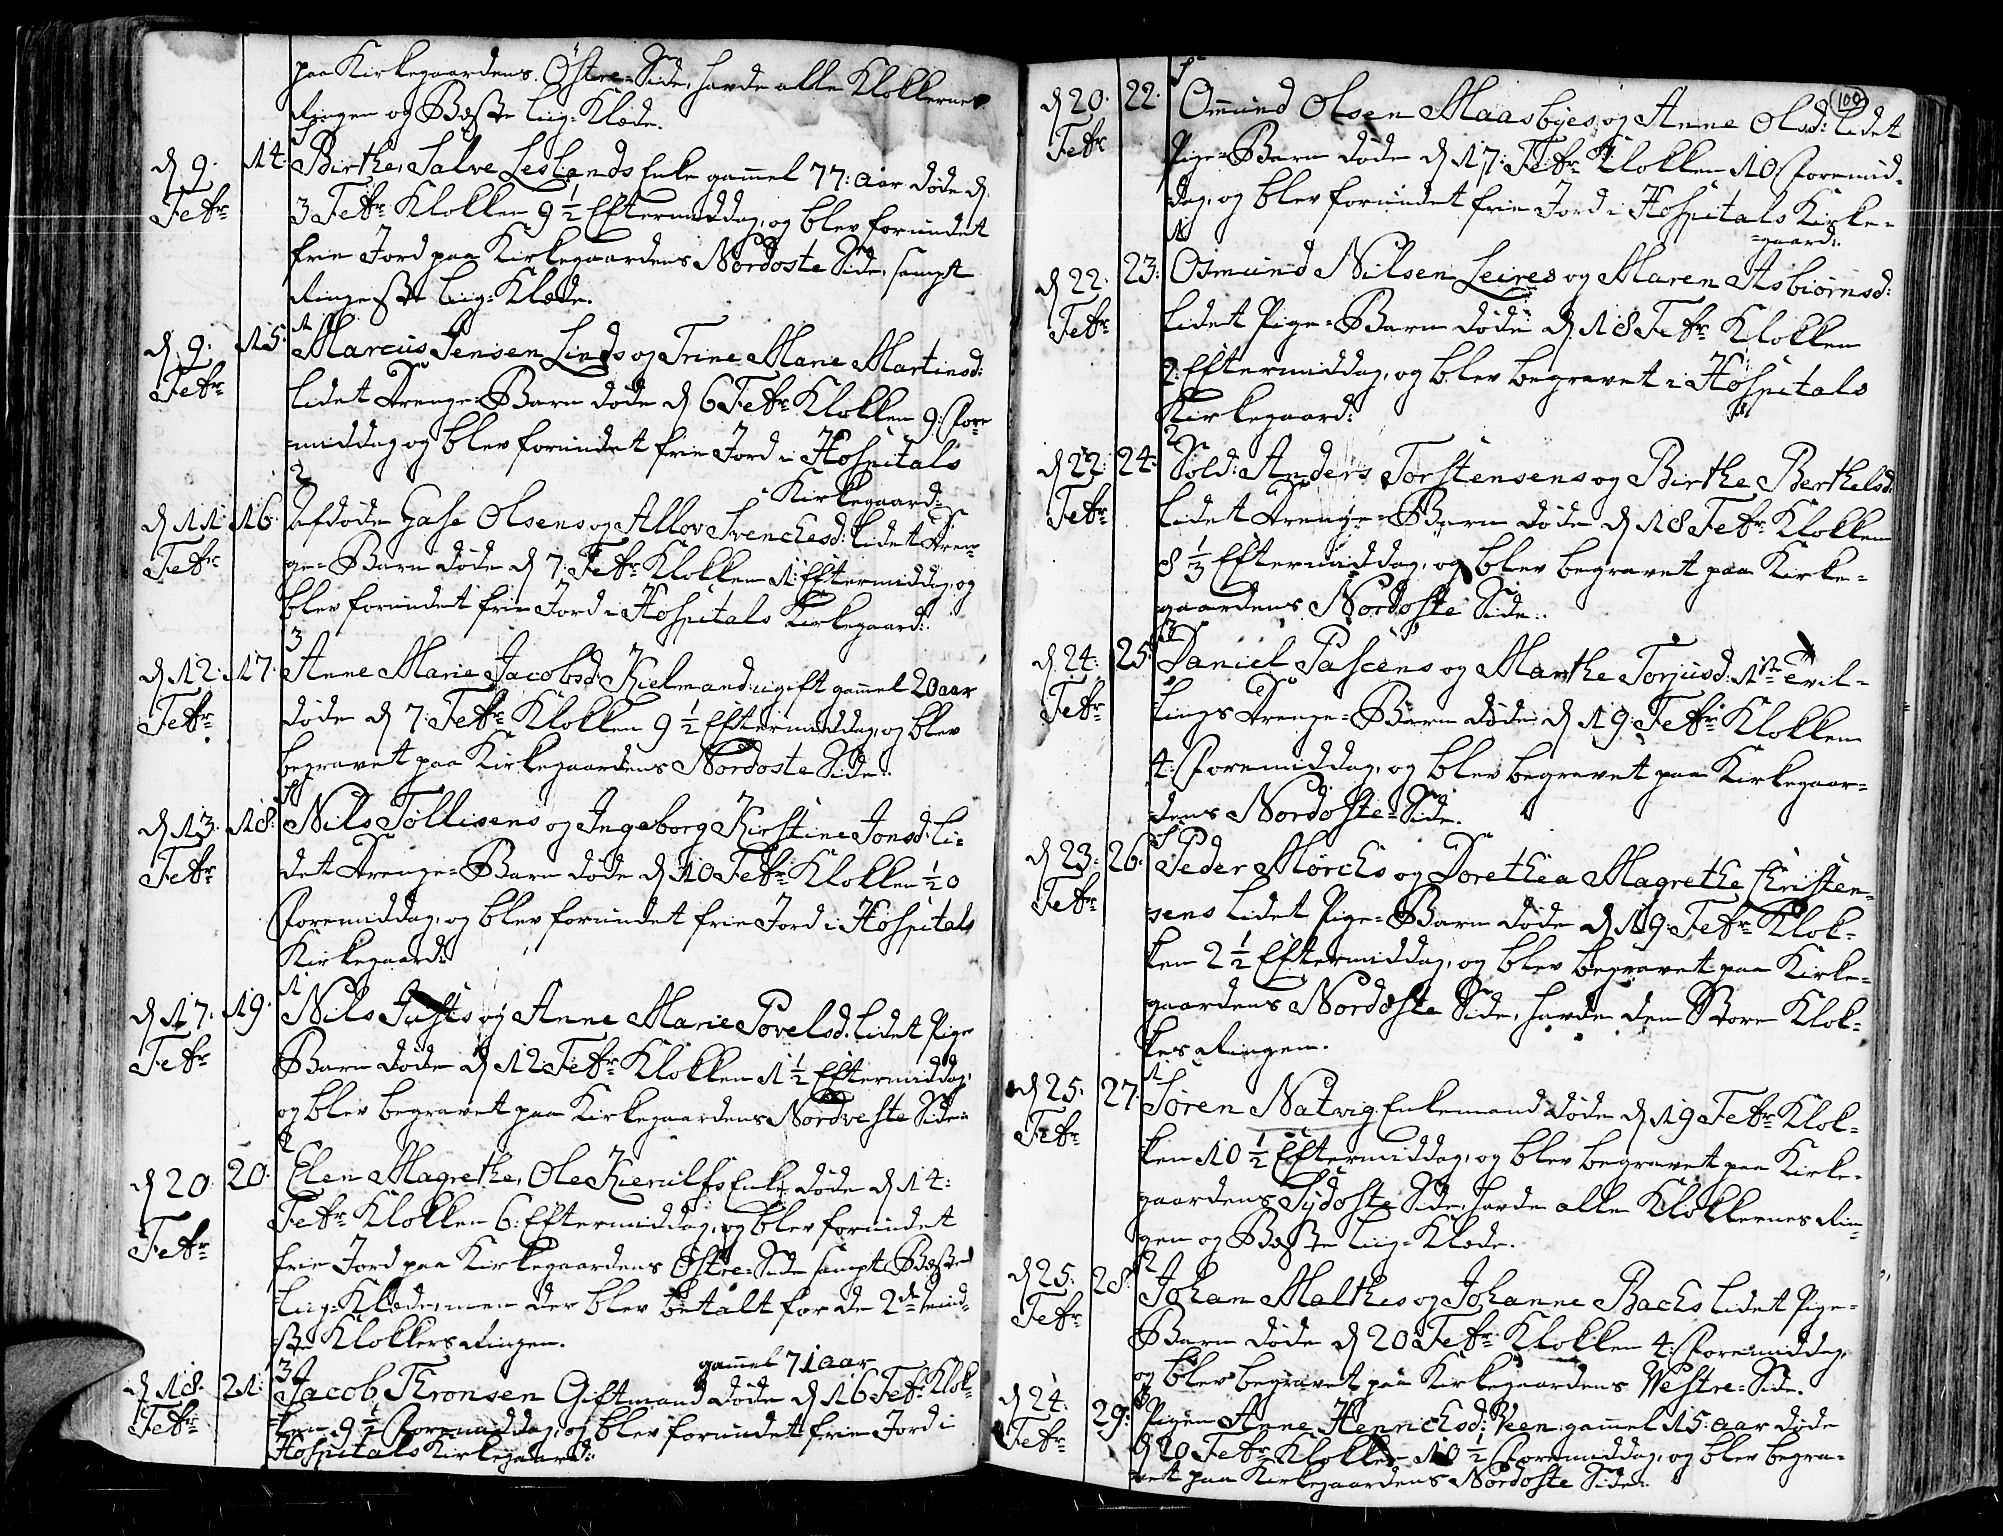 paa Kirkegaardens Östre-Side, havde alle Klokkernes
Ringen og Beste Liig-Klæde.
d 9. 14. Birthe, Salve Leslands Enke gammel 77: aar døde d
Febr 3 Febr Klokken 9 1/2 Eftermiddag, og blev forundet
frie Jord paa Kirkegaardens Nordoste Side, sampt
Ringeste Liig-Klæde.
1
d 9. 15. Marcus Jensen Linds og Trine Marie Martinsd:
Febr lidet Drenge-Barn døde d 6 Febr Klokken 9: For-
middag og blev forundet frie Jord i Hospitals
Kirkegaard:
2
d 11. 16. Afdøde Olsens og Allov Svenchesd: lidet Dren-
Febr ge-Barn døde d 7. Febr Klokken 1: Eftermiddag, og
blev forundet frie Jord i Hospitals Kirkegaard:
3
d 12. 17. Anne Marie Jacobsd: Kielmand ugift gammel 20 aar
Febr døde d 7. Febr Klokken 9 1/2 Eftermiddag, og blev
begravet paa Kirkegaardens Nordoste Side.
d 13. 18. Nils Tollisens og Ingeborg Kirstine Jonsd: li-
Febr det Drenge-Barn døde d 10 Febr Klokken 1/2 0
Formiddag, og blev forundet frie Jord i Hospitals
Kirkegaard:
1
d 17. 19. Nils Justs og Anne Marie Povelsd: lidet Pige
Febr Barn døde d 12 Febr Klokken 1 1/2 Eftermiddag,
og blev begravet paa Kirkegaardens Nordveste Side:
2
d 20 20. Elen Magrethe, Ole Enke døde d 14:
Febr Febr Klokken 6: Eftermiddag, og blev forundet
frie Jord paa Kirkegaardens Östre-Side sampt Beste
Liig-Klæde, men der blev betalt for de 2de mind-
ste Klokkers Ringen.
3 gammel 71 aar
d 18. 21. Jacob Thronsen Giftmand døde d 16 Febr Klok-
Febr ken 9 1/2 Formiddag, og blev forundet frie Jord i
Hospitals Kirkegaard:
100
d 20. 22. Omund Olsen Maasbyes og Anne Olsd: lidet
Febr Pige-Barn døde d 17: Febr Klokken 10 Formid-
dag, og blev forundet frie Jord i Hospitals Kirke-
-gaard:
1
d 22. 23. Osmund Nilsen Leires og Maren Asbiørnsd:
Febr lidet Pige-Barn døde d 18 Febr Klokken
2: Eftermiddag, og blev begravet i Hospitals
Kirkegaard:
2
d 22. 24. Sold: Anders Torstensens og Birthe Berthelsd:
Febr lidet Drenge-Barn døde d 18 Febr Klokken
8 1/3 Eftermiddag, og blev begravet paa Kirke-
gaardens Nordoste Side.
d 24. 25. Daniel Pascens og Marthe Torjusd: 1ste Tvil-
Febr lings Drenge-Barn døde d 19 Febr Klokken
4: Formiddag, og blev begravet paa Kirkegaar-
dens Nordoste-Side.
d 23. 26. Peder Mörchs og Dorethea Magrethe Christen-
Febr sens lidet Pige-Barn døde d 19. Febr Klok-
ken 2 1/2 Eftermiddag, og blev begravet paa Kirke-
gaardens Nordoste Side, havde den Store Klok-
kes Ringen.
1
d 25. 27. Sören Natvig Enkemand døde d 19 Febr Klok-
Febr ken 10 1/2 Eftermiddag, og blev begravet paa Kirke-
gaardens Sydoste Side, havde alle Klokkernes Rin-
gen og Beste Liig-Klæde.
2
d 25. 28. Johan Malthes og Johanne Bachs lidet Pige-
Febr Barn døde d 20 Febr Klokken 4: Formiddag,
og blev begravet paa Kirkegaardens Westre-Side.
d 24. 29. Pigen Anne Henrichsd: Veen: gammel 15: aar døde
Febr d 20 Febr Klokken 10 1/2 Formiddag, og blev begra-
vet paa Kirkegaardens Nordoste Side.